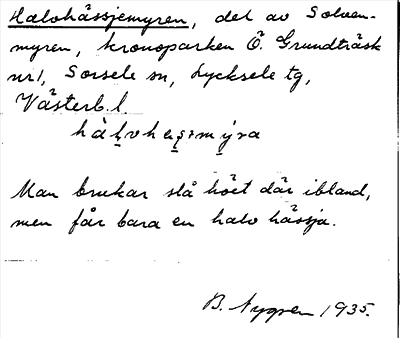 Halvhässjemyren, del av Solven-
myren, kronoparken Ö. Grundträsk
nr 1, Sorsele sn, Lycksele tg,
Västerb. l

Man brukar slå höet där ibland,
men får bara en halv hässja.
B. Nygren 1935.